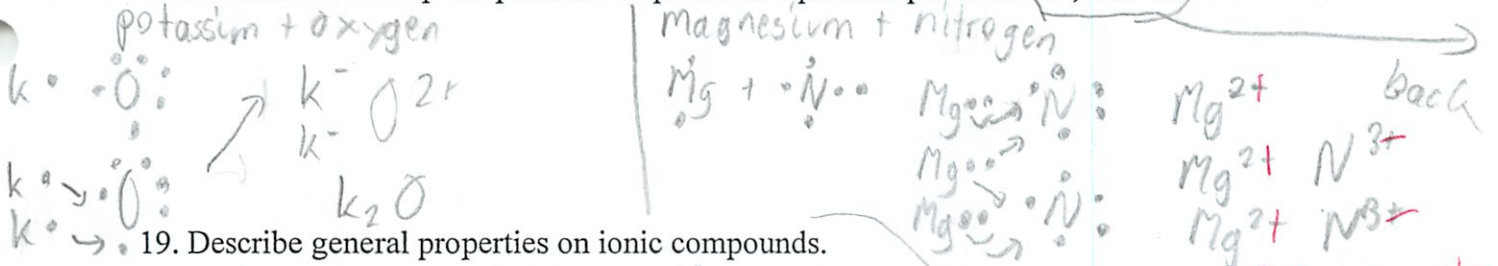 potassium + oxygen
k• •O:
k⁻
k⁻
O 2+
k•
k•
O:
k₂O
magnesium + nitrogen
Mg + •N••
Mg
N:
Mg
Mg
N:
Mg²⁺
Mg²⁺ N³⁻
Mg²⁺ N³⁻
back
19. Describe general properties on ionic compounds.